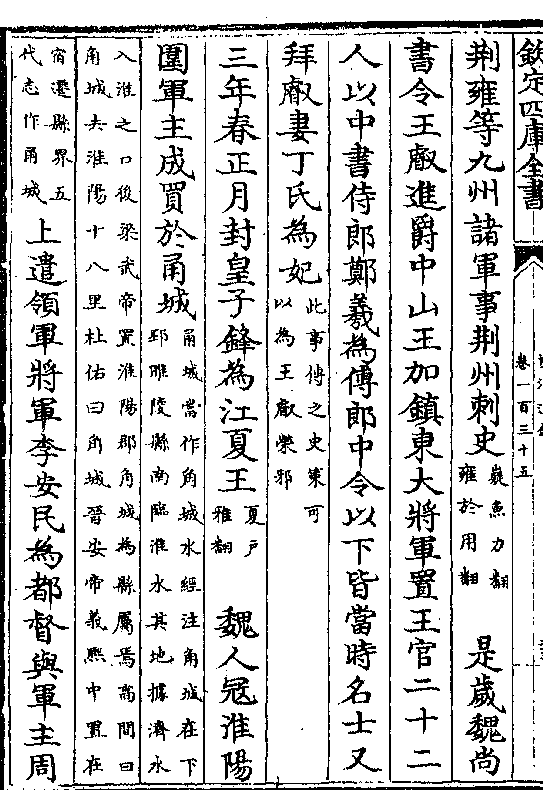 欽定四庫全書
卷一百三十五
荆雍等九州諸軍事荆州刺史嶷魚力翻雍於用翻　是歲魏尚
書令王叡進爵中山王加鎮東大將軍置王官二十二
人以中書侍郎鄭羲為傅郎中令以下皆當時名士又
拜叡妻丁氏為妃此事傳之史策可以為王叡榮邪
三年春正月封皇子鋒為江夏王夏户雅翻　魏人冦淮陽
圍軍主成買於甬城甬城當作角城水經注角城在下邳睢陵縣南臨淮水其地據濟水
入淮之口後梁武帝置淮陽郡角城為縣屬焉高閭曰角城去淮陽十八里杜佑曰角城晉安帝義熙中置在
宿遷縣界五代志作甬城上遣領軍將軍李安民為都督與軍主周